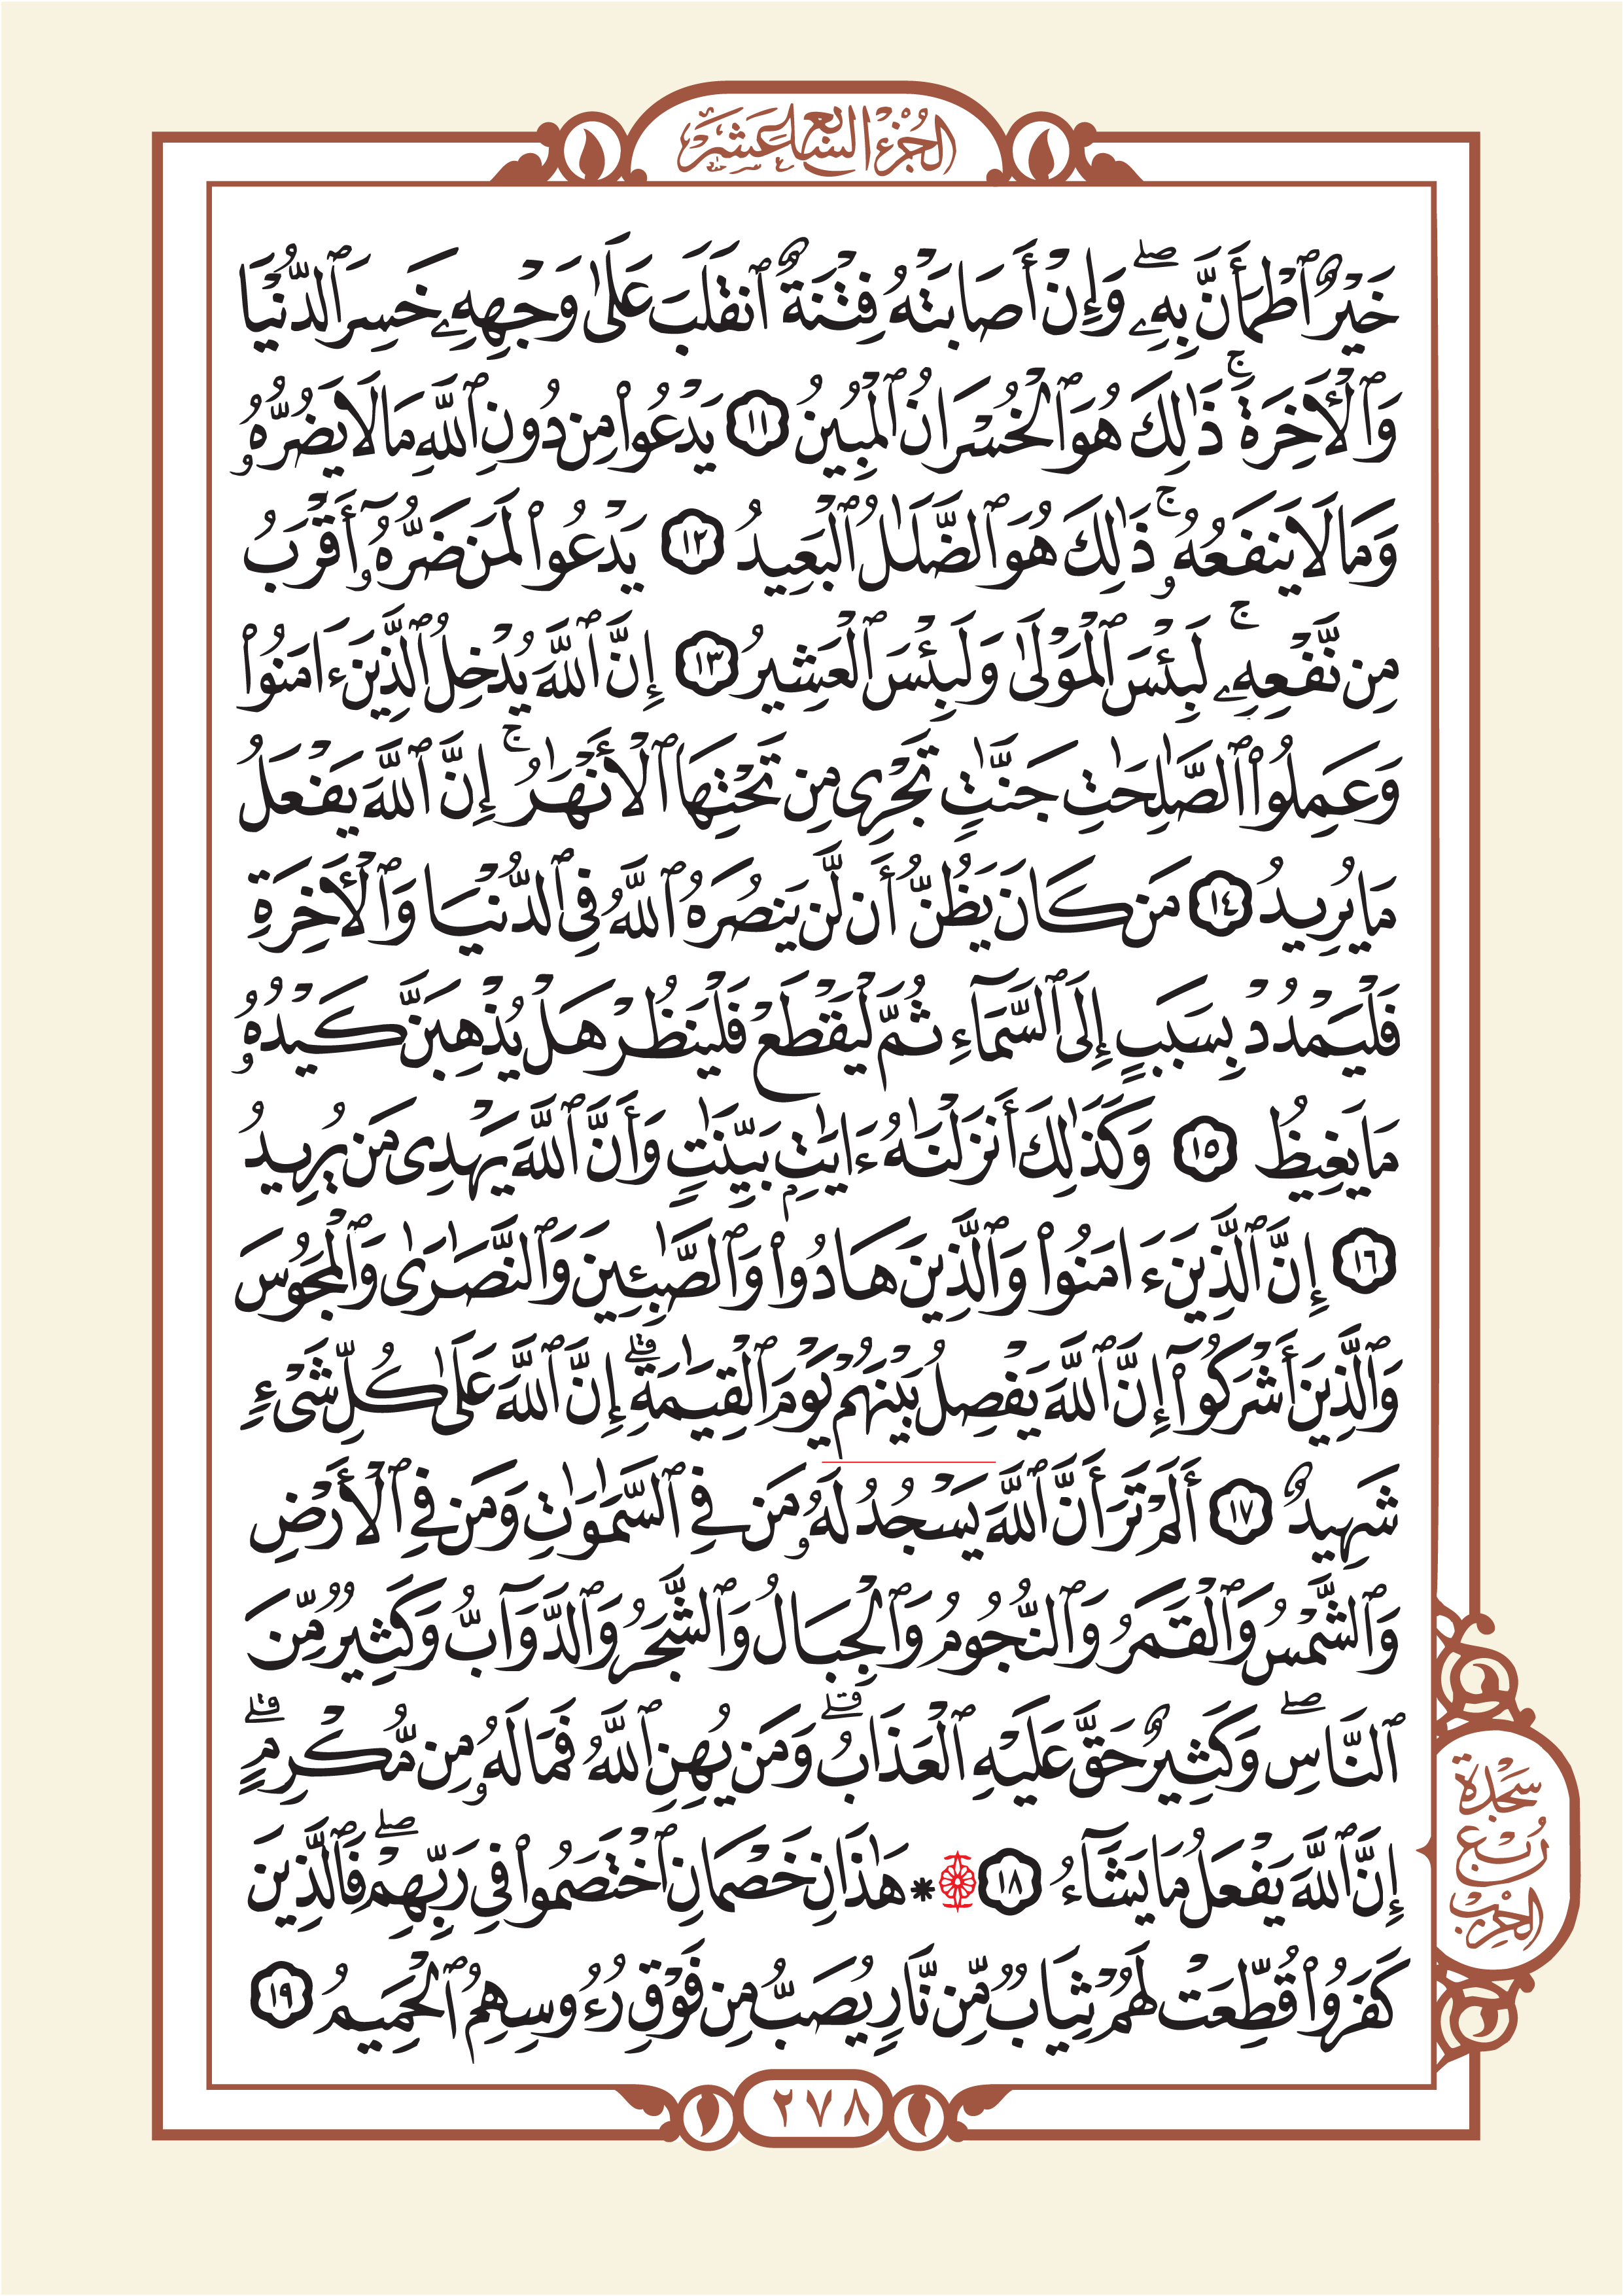 الجزء السابع عشر
خَيْرٌ ٱطْمَأَنَّ بِهِۦۖ وَإِنْ أَصَابَتْهُ فِتْنَةٌ ٱنقَلَبَ عَلَىٰ وَجْهِهِۦ خَسِرَ ٱلدُّنْيَا
وَٱلْأَخِرَةَۚ ذَٰلِكَ هُوَ ٱلْخُسْرَانُ ٱلْمُبِينُ ١١ يَدْعُوا۟ مِن دُونِ ٱللَّهِ مَا لَا يَضُرُّهُۥ
وَمَا لَا يَنفَعُهُۥۚ ذَٰلِكَ هُوَ ٱلضَّلَٰلُ ٱلْبَعِيدُ ١٢ يَدْعُوا۟ لَمَن ضَرُّهُۥٓ أَقْرَبُ
مِن نَّفْعِهِۦۚ لَبِئْسَ ٱلْمَوْلَىٰ وَلَبِئْسَ ٱلْعَشِيرُ ١٣ إِنَّ ٱللَّهَ يُدْخِلُ ٱلَّذِينَ ءَامَنُوا۟
وَعَمِلُوا۟ ٱلصَّٰلِحَٰتِ جَنَّٰتٍ تَجْرِى مِن تَحْتِهَا ٱلْأَنْهَٰرُۚ إِنَّ ٱللَّهَ يَفْعَلُ
مَا يُرِيدُ ١٤ مَن كَانَ يَظُنُّ أَن لَّن يَنصُرَهُ ٱللَّهُ فِى ٱلدُّنْيَا وَٱلْأَخِرَةِ
فَلْيَمْدُدْ بِسَبَبٍ إِلَى ٱلسَّمَآءِ ثُمَّ لْيَقْطَعْ فَلْيَنظُرْ هَلْ يُذْهِبَنَّ كَيْدُهُۥ
مَا يَغِيظُ ١٥ وَكَذَٰلِكَ أَنزَلْنَٰهُ ءَايَٰتِۭ بَيِّنَٰتٍ وَأَنَّ ٱللَّهَ يَهْدِى مَن يُرِيدُ
١٦ إِنَّ ٱلَّذِينَ ءَامَنُوا۟ وَٱلَّذِينَ هَادُوا۟ وَٱلصَّٰبِـِٔينَ وَٱلنَّصَٰرَىٰ وَٱلْمَجُوسَ
وَٱلَّذِينَ أَشْرَكُوٓا۟ إِنَّ ٱللَّهَ يَفْصِلُ بَيْنَهُمْ يَوْمَ ٱلْقِيَٰمَةِۗ إِنَّ ٱللَّهَ عَلَىٰ كُلِّ شَىْءٍ
شَهِيدٌ ١٧ أَلَمْ تَرَ أَنَّ ٱللَّهَ يَسْجُدُ لَهُۥ مَن فِى ٱلسَّمَٰوَٰتِ وَمَن فِى ٱلْأَرْضِ
وَٱلشَّمْسُ وَٱلْقَمَرُ وَٱلنُّجُومُ وَٱلْجِبَالُ وَٱلشَّجَرُ وَٱلدَّوَآبُّ وَكَثِيرٌ مِّنَ
ٱلنَّاسِۖ وَكَثِيرٌ حَقَّ عَلَيْهِ ٱلْعَذَابُۗ وَمَن يُهِنِ ٱللَّهُ فَمَا لَهُۥ مِن مُّكْرِمٍۗ
إِنَّ ٱللَّهَ يَفْعَلُ مَا يَشَآءُ ١٨ * هَٰذَانِ خَصْمَانِ ٱخْتَصَمُوا۟ فِى رَبِّهِمْۖ فَٱلَّذِينَ
كَفَرُوا۟ قُطِّعَتْ لَهُمْ ثِيَابٌ مِّن نَّارٍ يُصَبُّ مِن فَوْقِ رُءُوسِهِمُ ٱلْحَمِيمُ ١٩
سجدة
ربع
الحزب
٢٧٨